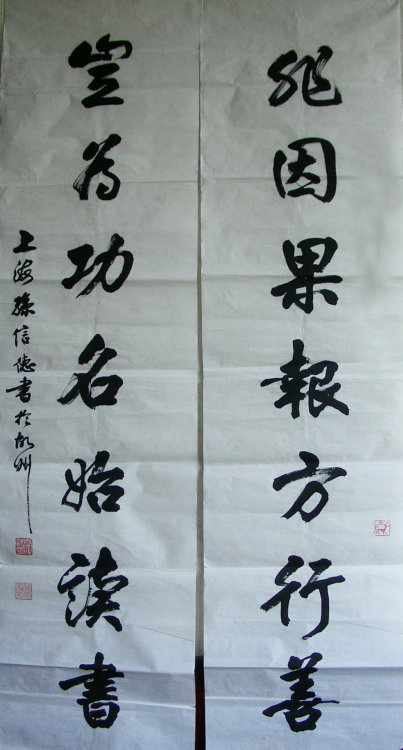 非因果報方行善
豈為功名始讀書
上海孫信德書於州